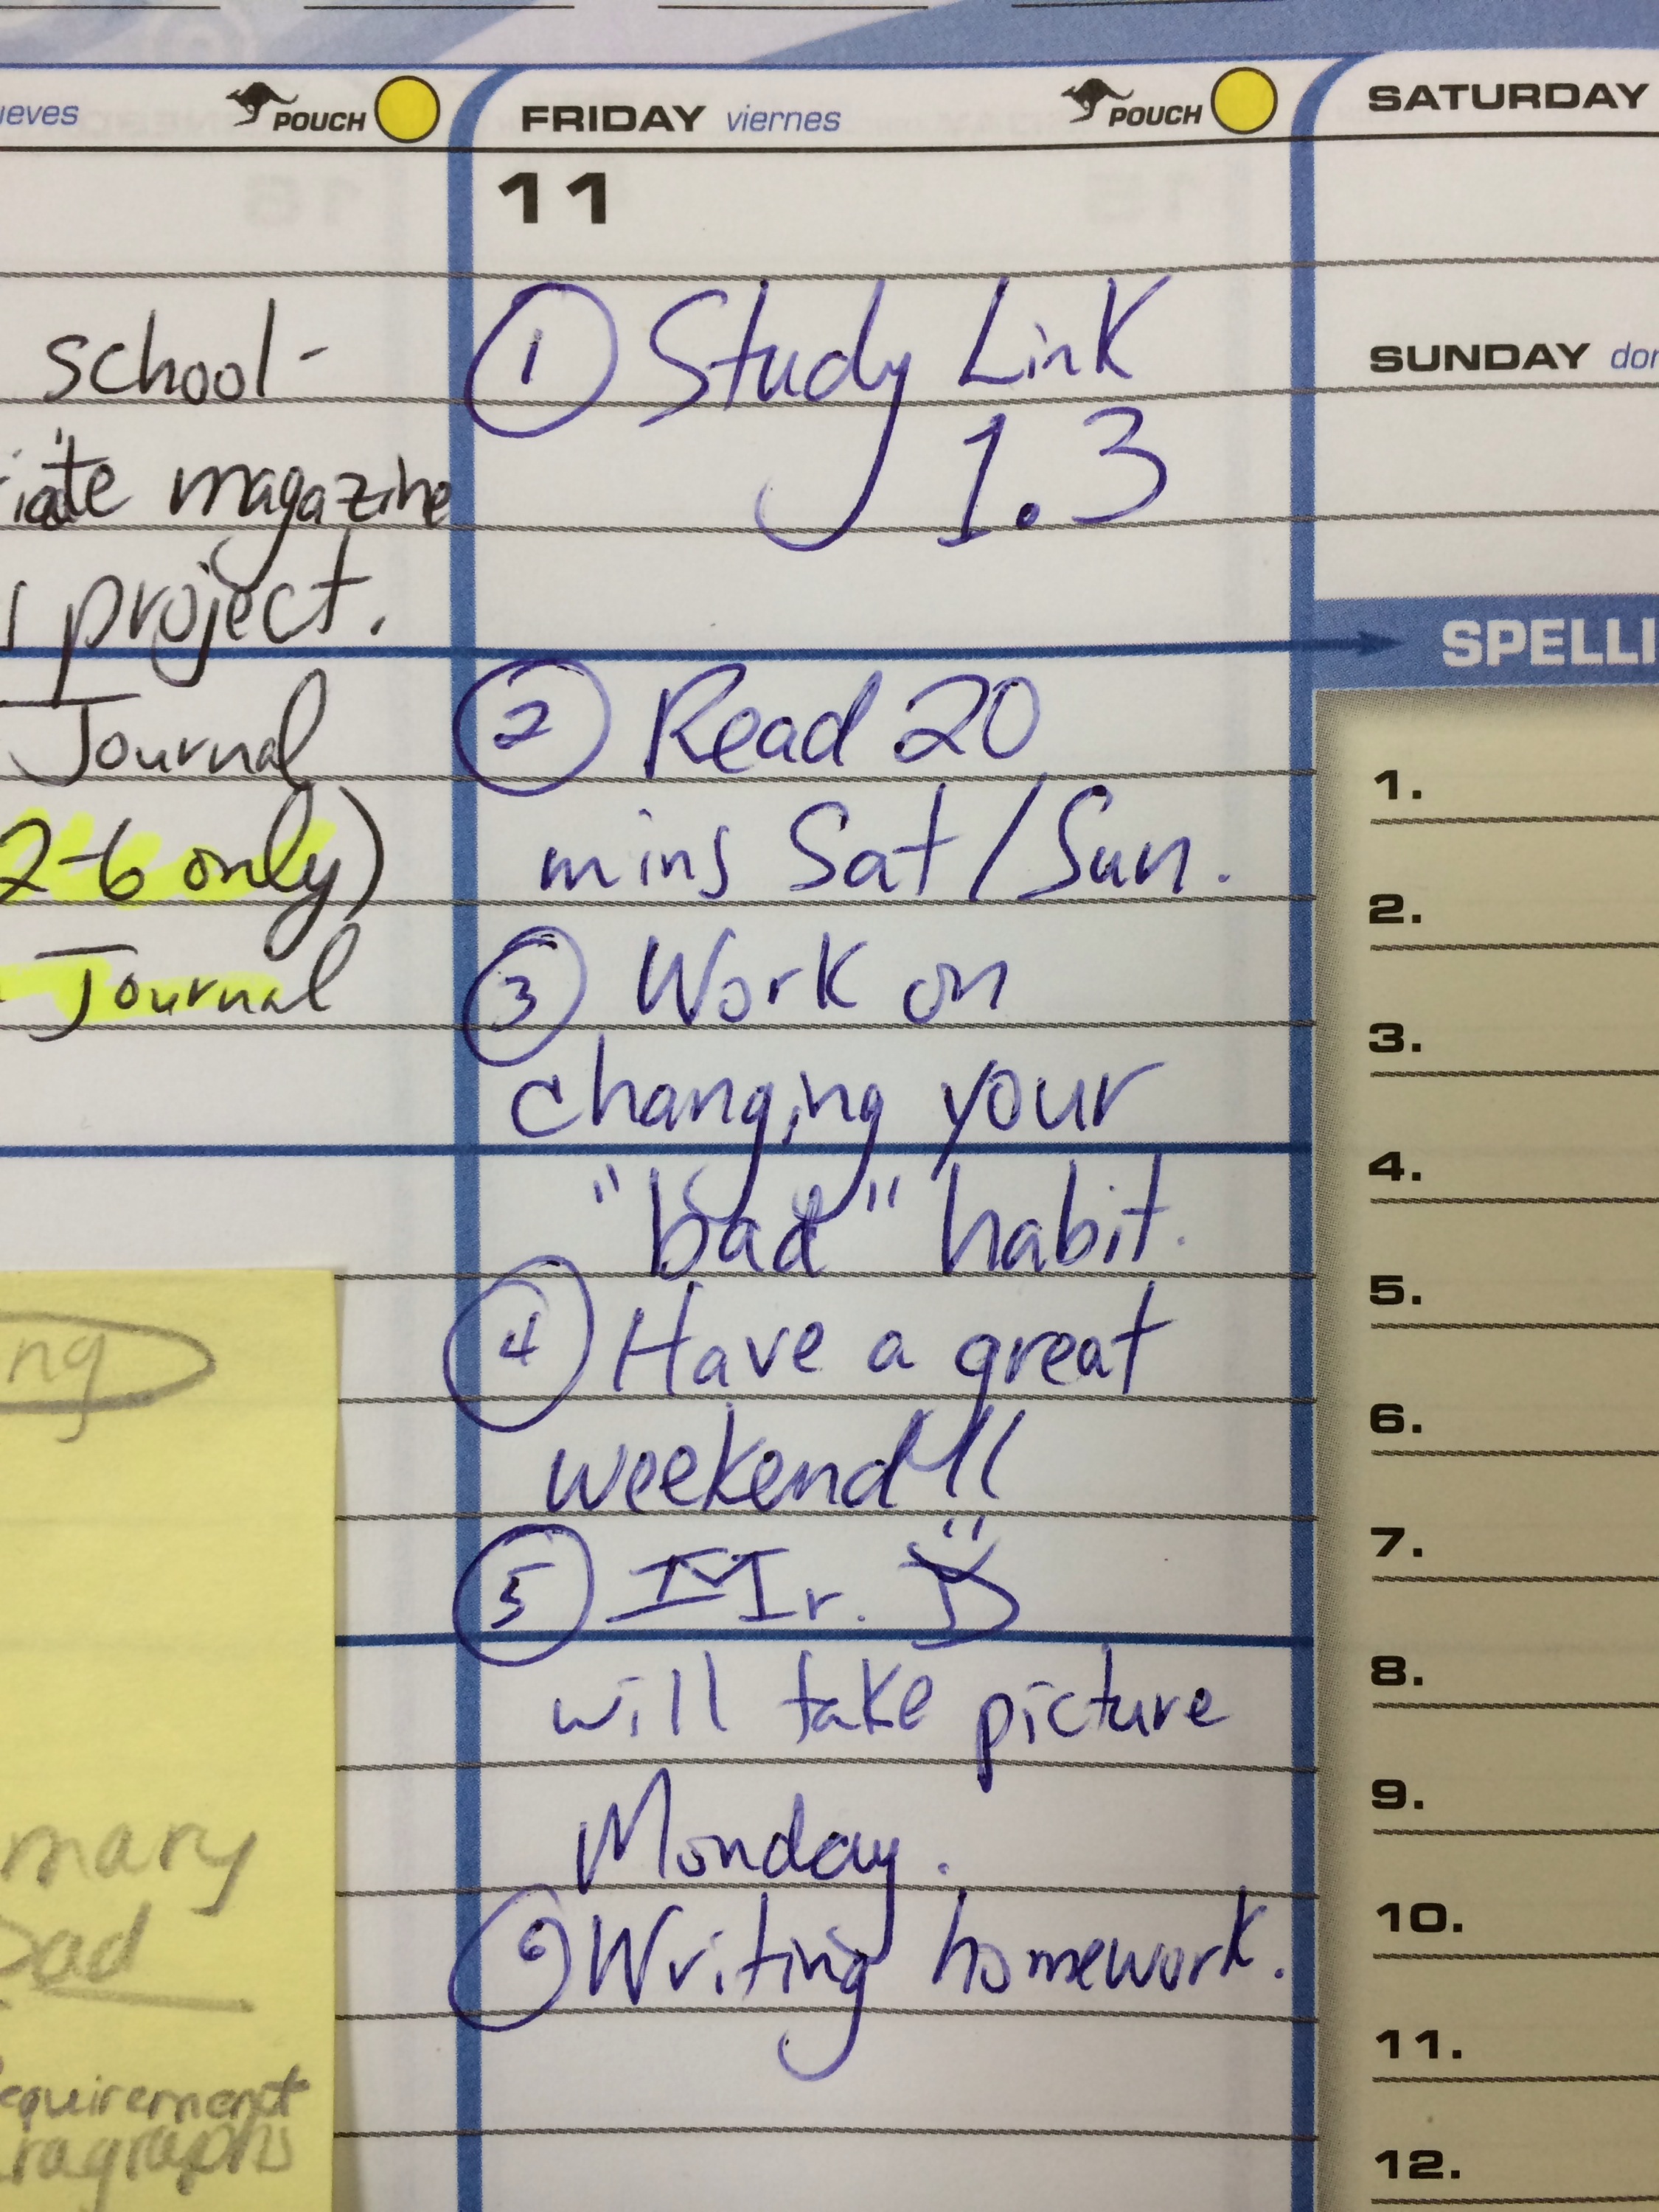 ueves POUCH
school-
iate magazine
project.
Journal
2-6 only)
Journal
ng
mary
Dad
equirement
ragraphs
FRIDAY viernes POUCH
11
① Study Link
1.3
② Read 20
mins Sat/Sun.
③ Work on
changing your
"bad" habit.
④ Have a great
weekend!!!
⑤ Mr. D
will take picture
Monday.
⑥ Writing homework.
SATURDAY
SUNDAY do
SPELLI
1.
2.
3.
4.
5.
6.
7.
8.
9.
10.
11.
12.